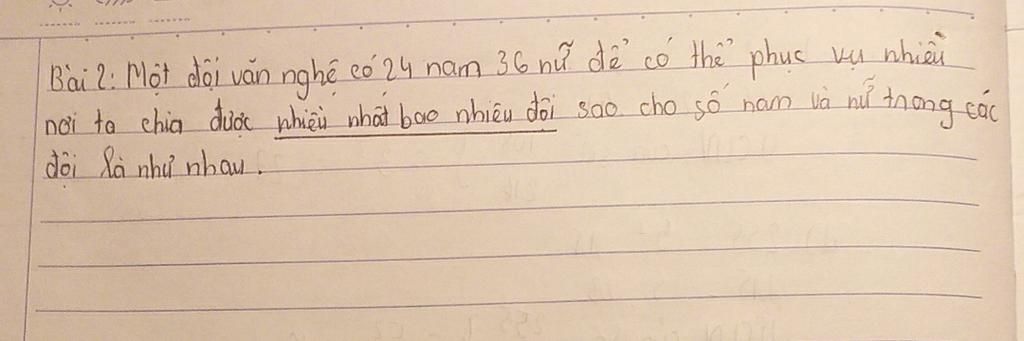 Bài 2: Một đội văn nghệ có 24 nam 36 nữ để có thể phục vụ nhiều
nơi ta chia được nhiều nhất bao nhiêu đội sao cho số nam và nữ trong các
đội là như nhau.